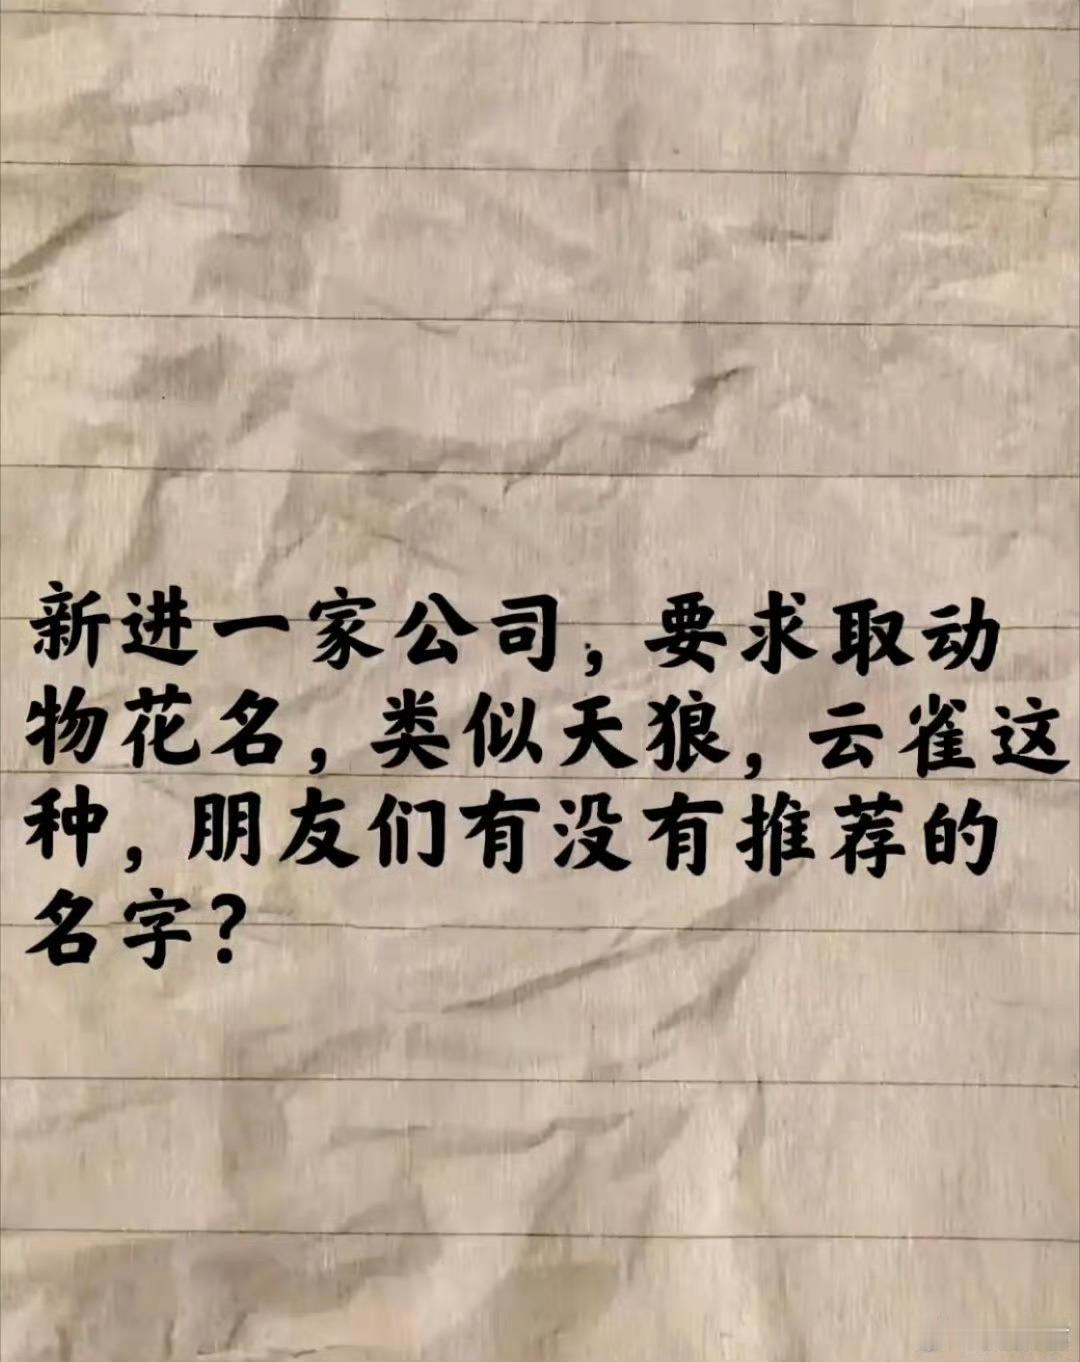 新进一家公司，要求取动
物花名，类似天狼，云雀这
种，朋友们有没有推荐的
名字？